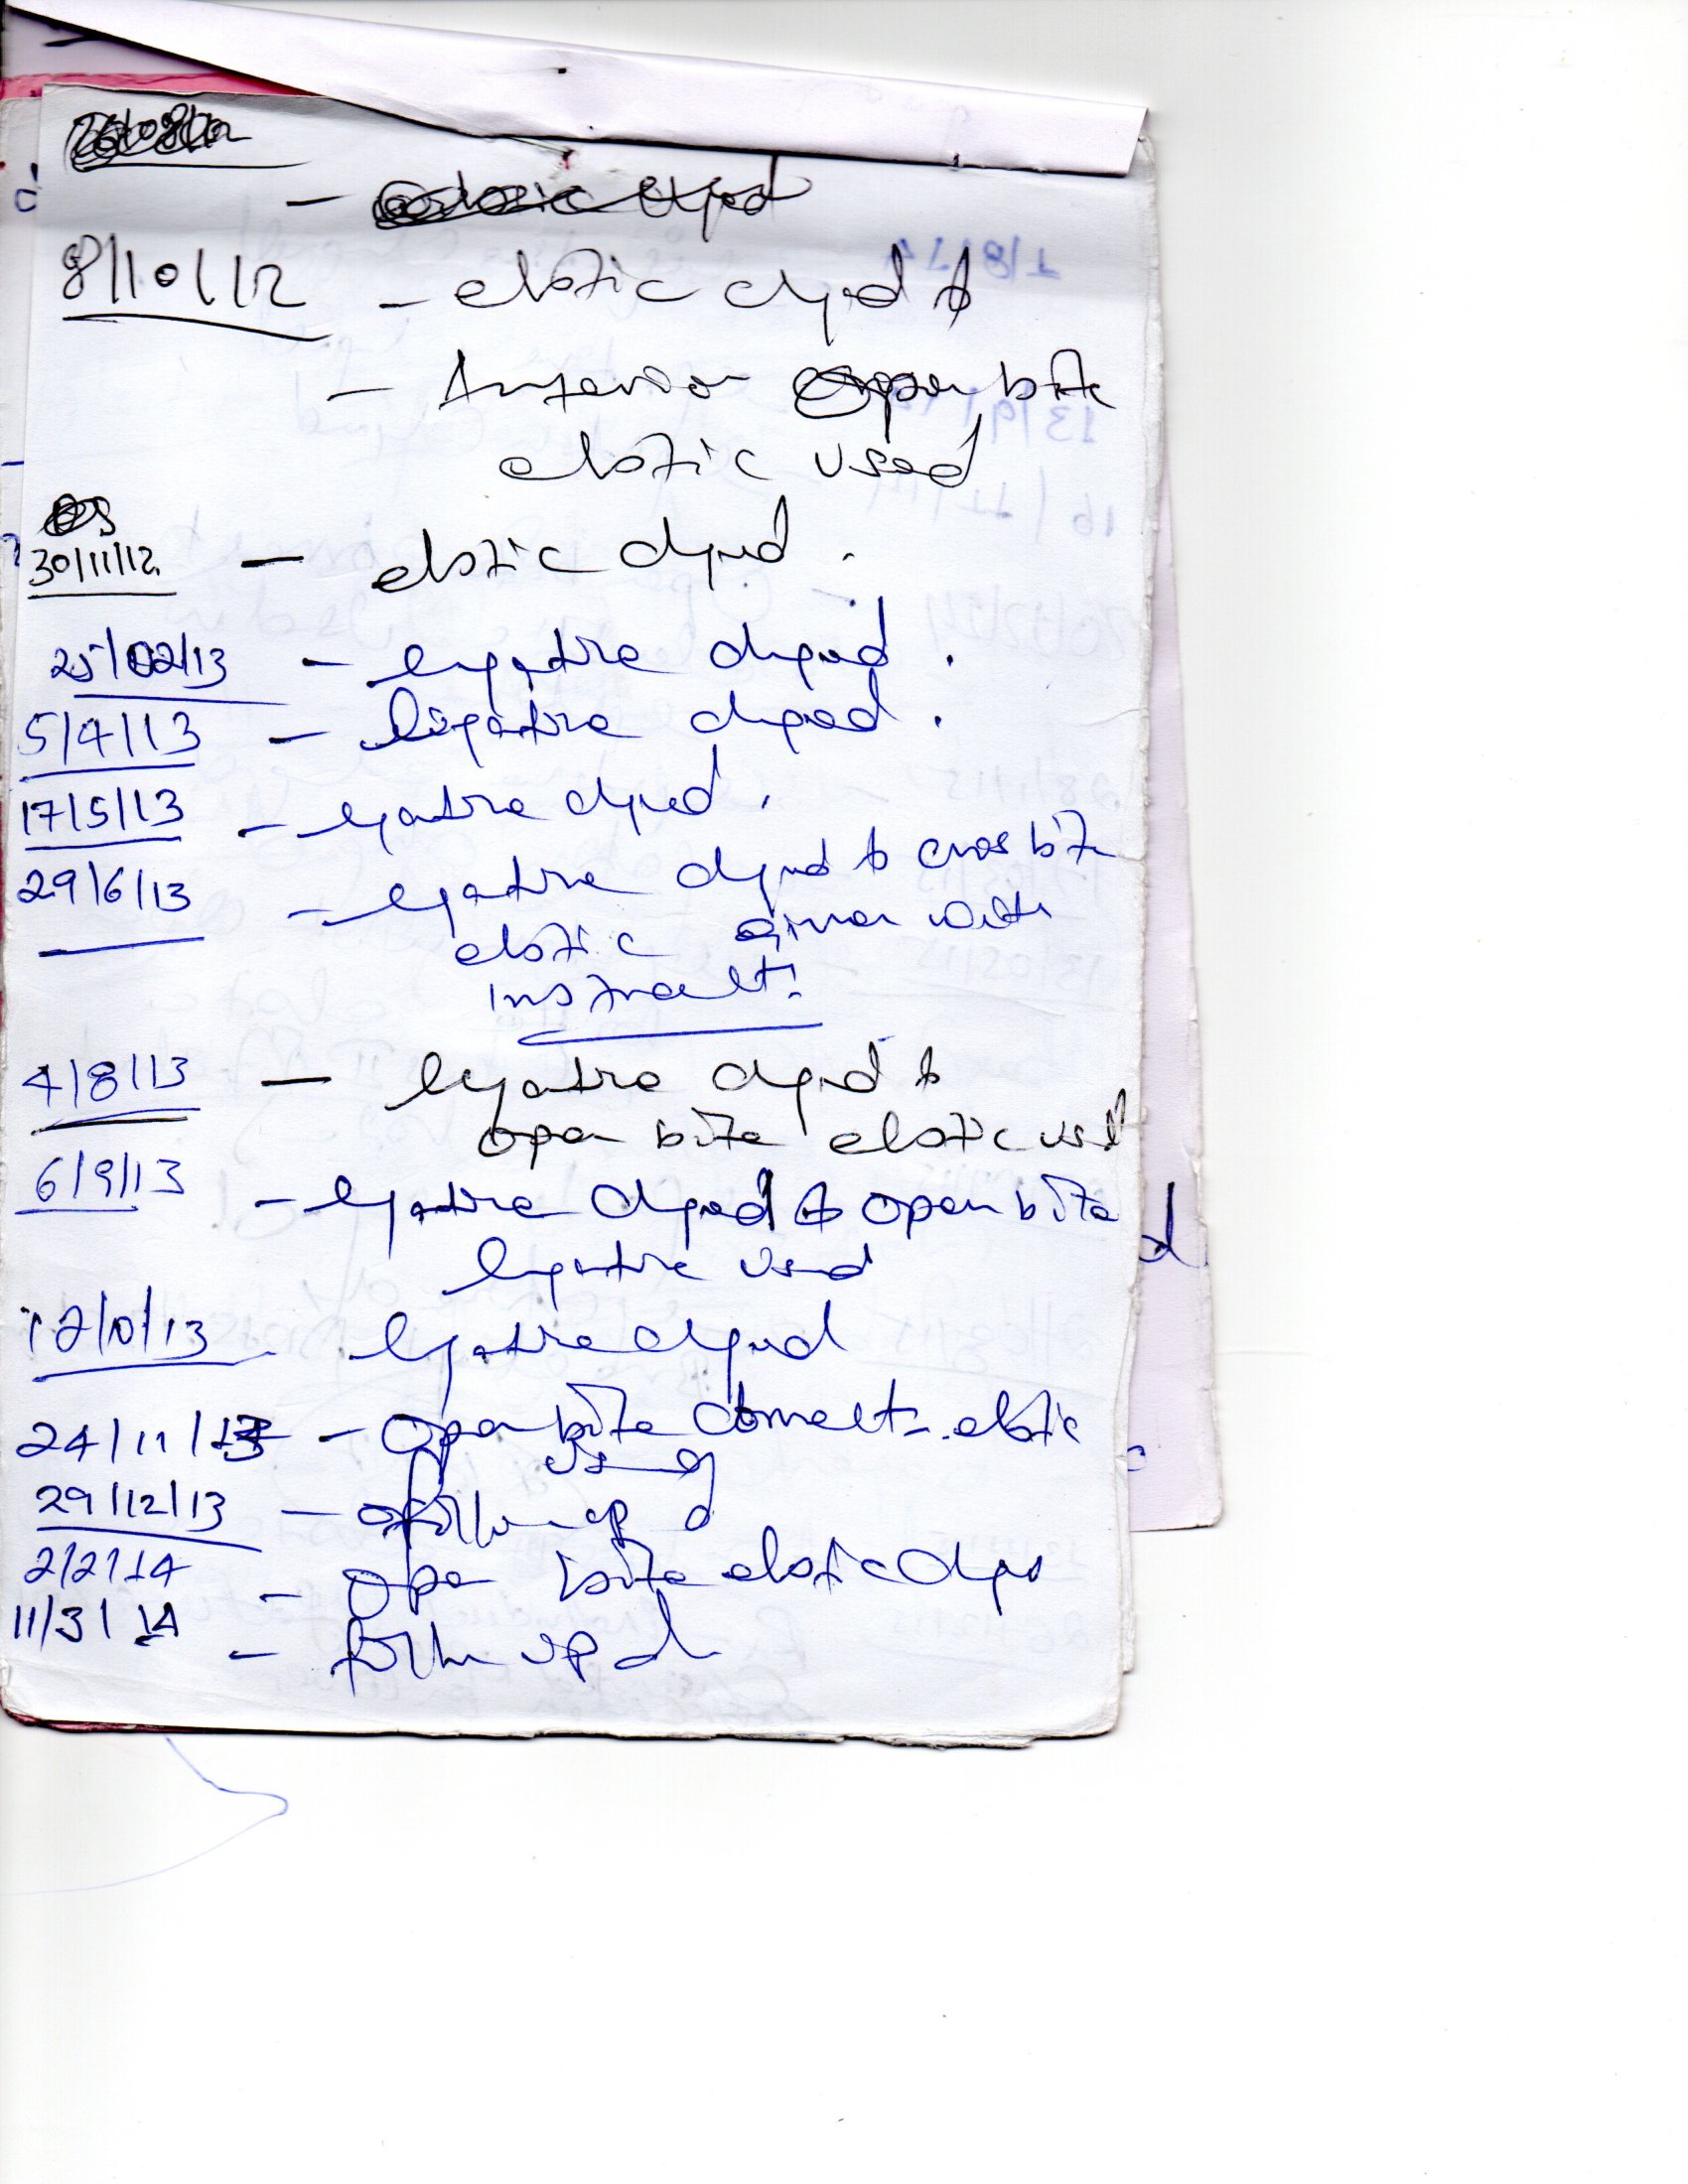 8/10/12 - elastic chged &
- Anterior open bite
elastic used
30/11/12 - elastic chged.
25/02/13 - ligatre chged.
5/4/13 - ligatre chged.
17/5/13 - ligatre chged.
29/6/13 - ligatre chged & cross bite
elastic given with
instruct:
4/8/13 - ligatre chged &
open bite elastic used
6/9/13 - ligatre chged & open bite
ligatre used
12/10/13 ligatre chged
24/11/13 - open bite correct elastic
using
29/12/13 - follow up d
2/2/14 - open bite elastic chged
11/3/14 - follow up d